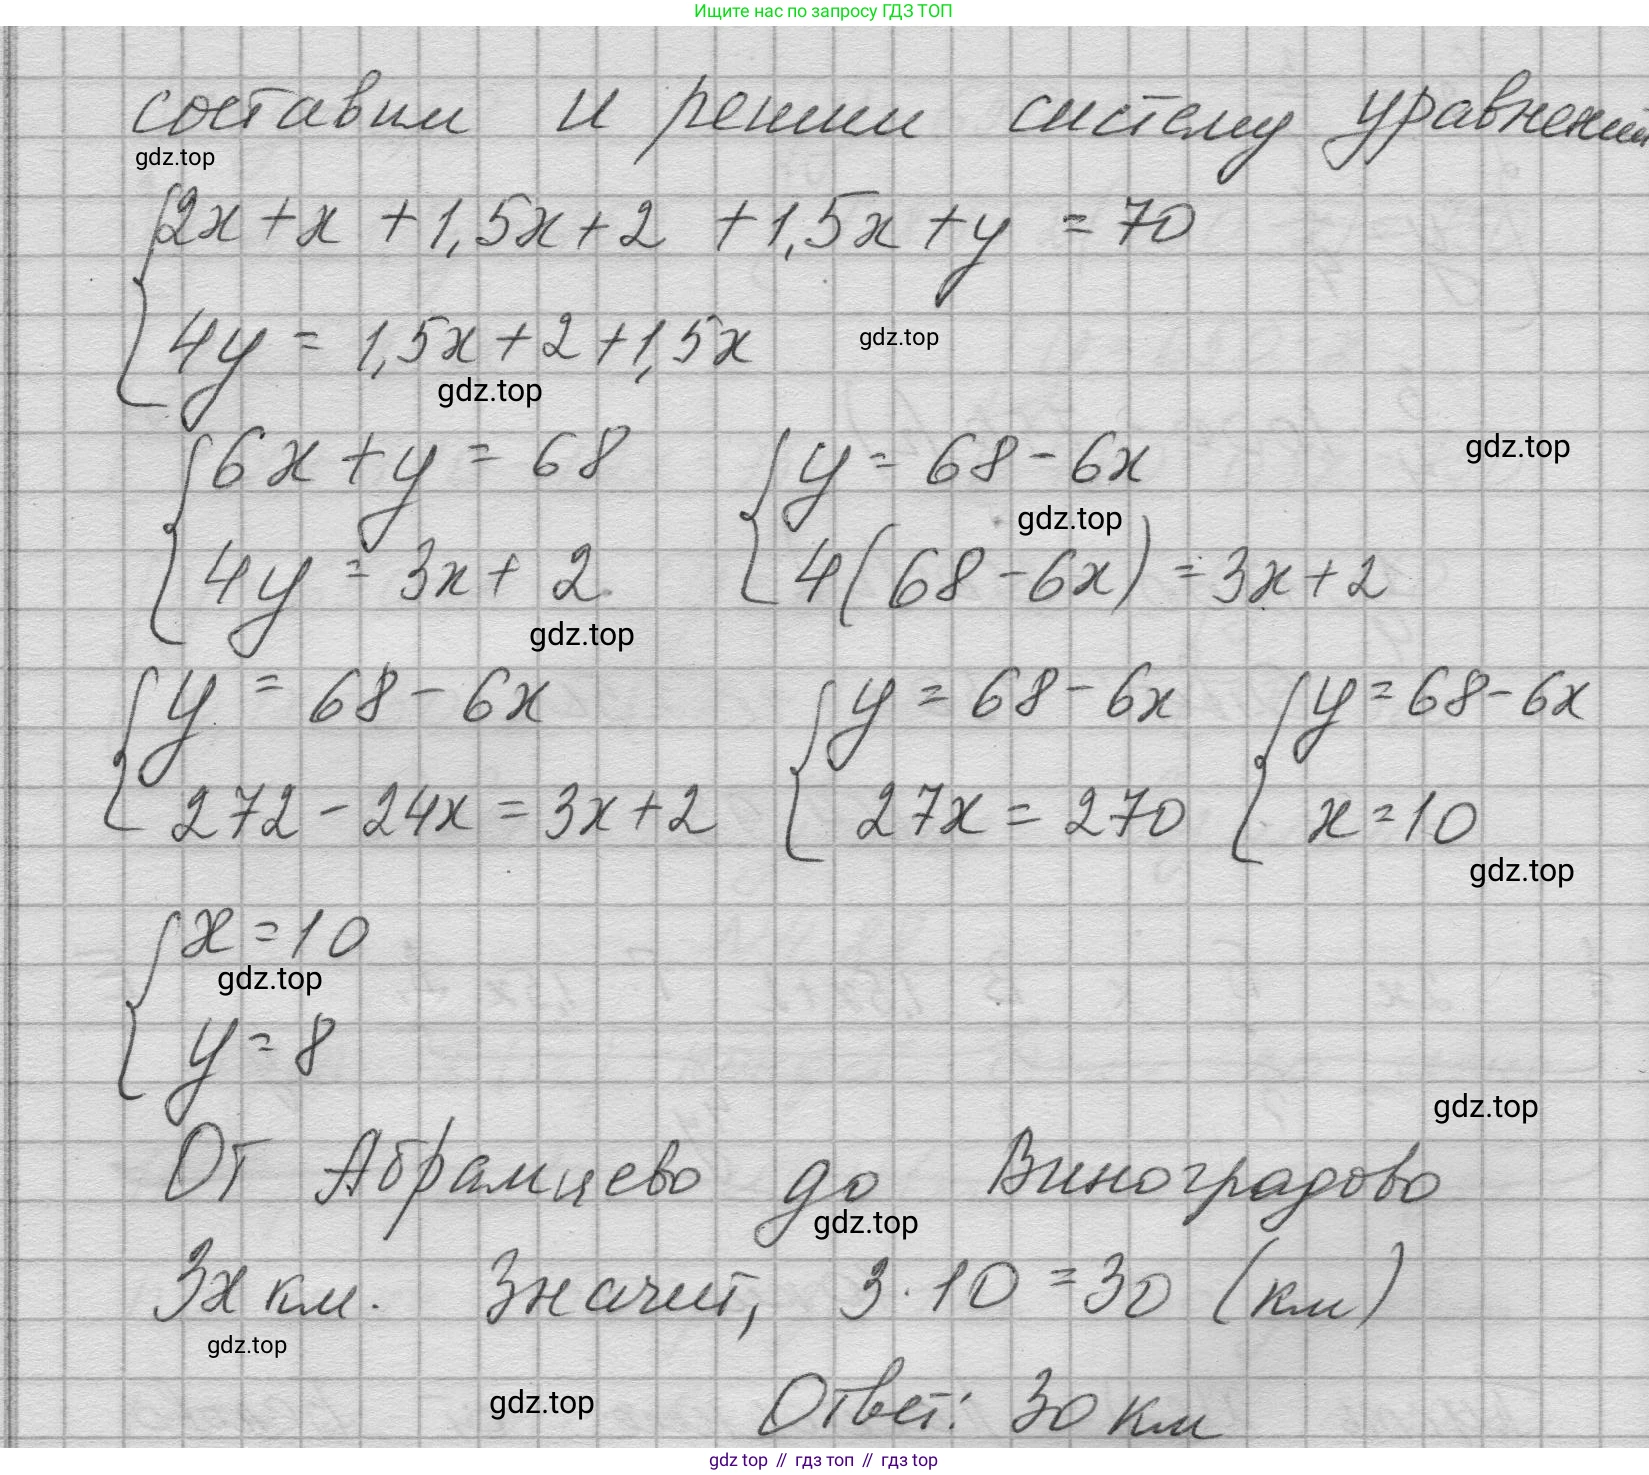 Ищите нас по запросу ГДЗ ТОП
составим и решим систему уравнений
gdz.top
2x + x + 1,5x + 2 + 1,5x + y = 70
4y = 1,5x + 2 + 1,5x
gdz.top
gdz.top
6x + y = 68 y = 68 - 6x
gdz.top
gdz.top
4y = 3x + 2 4(68 - 6x) = 3x + 2
gdz.top
y = 68 - 6x y = 68 - 6x y = 68 - 6x
272 - 24x = 3x + 2 27x = 270 x = 10
gdz.top
x = 10
gdz.top
y = 8
gdz.top
От Абрамцево до Виноградово
gdz.top
3x км. Значит, 3 · 10 = 30 (км)
gdz.top
gdz.top
Ответ: 30 км
gdz top // гдз топ // гдз top